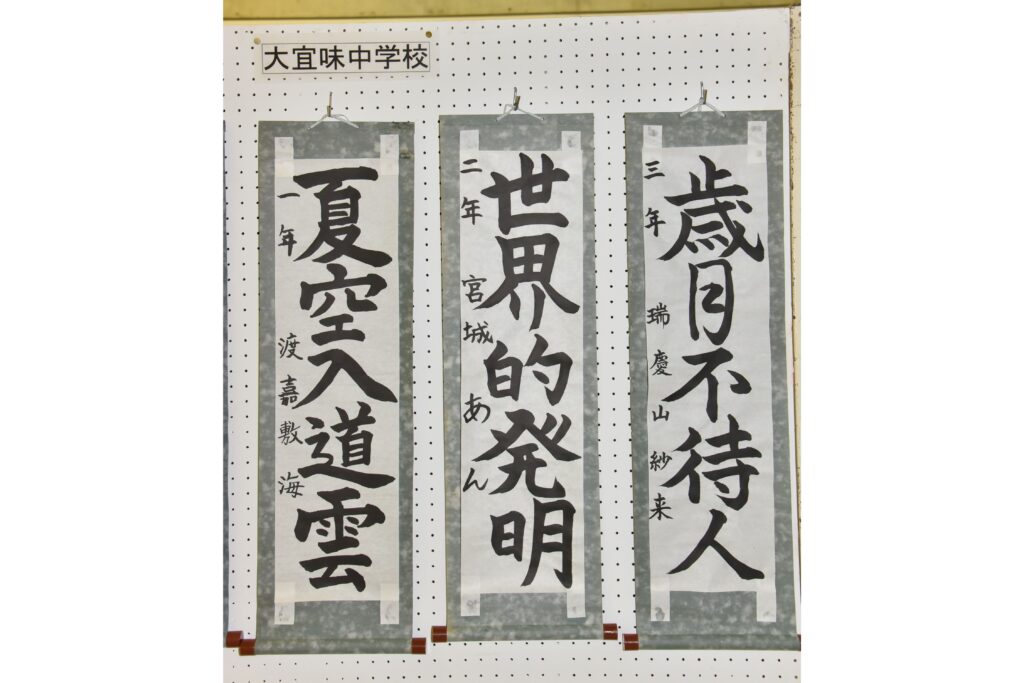 大宜味中学校
歳月不待人
三年 瑞慶山紗来
世界的発明
二年 宮城あん
夏空入道雲
一年 渡嘉敷海